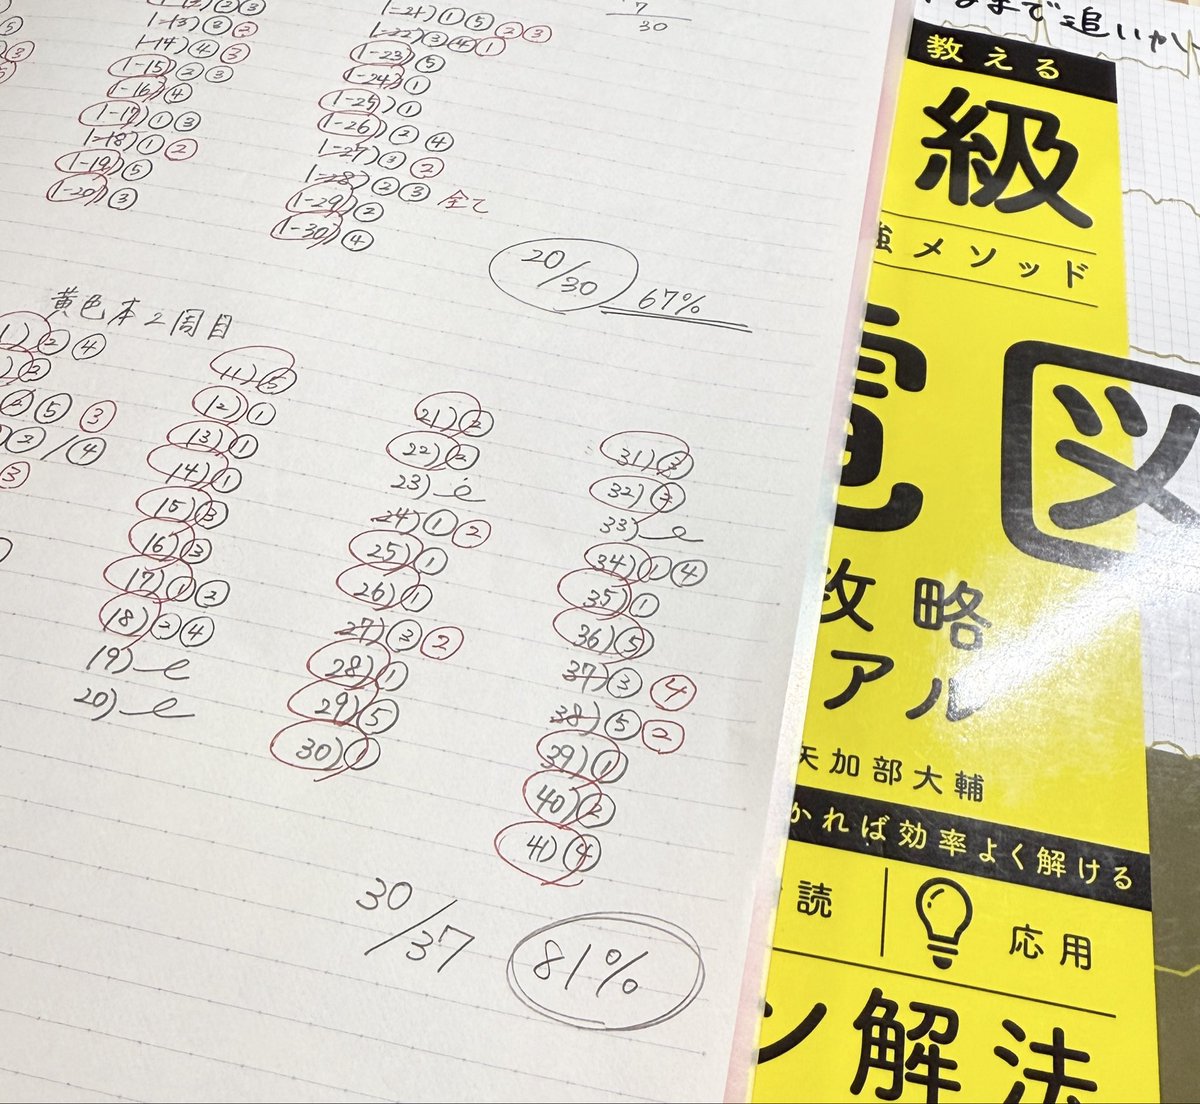 1-14) ④ ③
1-15) ② ③
1-16) ④
1-17) ① ③
1-18) ① ②
1-19) ⑤
1-20) ③
1-21) ① ⑤ ② ③
1-22) ③ ④ ①
1-23) ⑤
1-24) ①
1-25) ①
1-26) ② ④
1-27) ③ ②
1-28) ② ③ 全て
1-29) ②
1-30) ④
30
20/30
67%
黄色本2周目
1) ② ④
② ⑤ ③
② / ④
③
11) ⑤
12) ①
13) ①
14) ①
15) ③
16) ③
17) ① ②
18) ② ④
19)
20)
21) ②
22) ②
23)
24) ① ②
25) ①
26) ①
27) ③ ②
28) ①
29) ⑤
30) ①
31) ③
32) ②
33)
34) ① ④
35) ①
36) ⑤
37) ③ ④
38) ⑤ ②
39) ①
40) ②
41) ④
30/37
81%
まで追いかけ
教える
級
強メソッド
電図
攻略
アル
矢加部大輔
かれば効率よく解ける
読
応用
ン解法